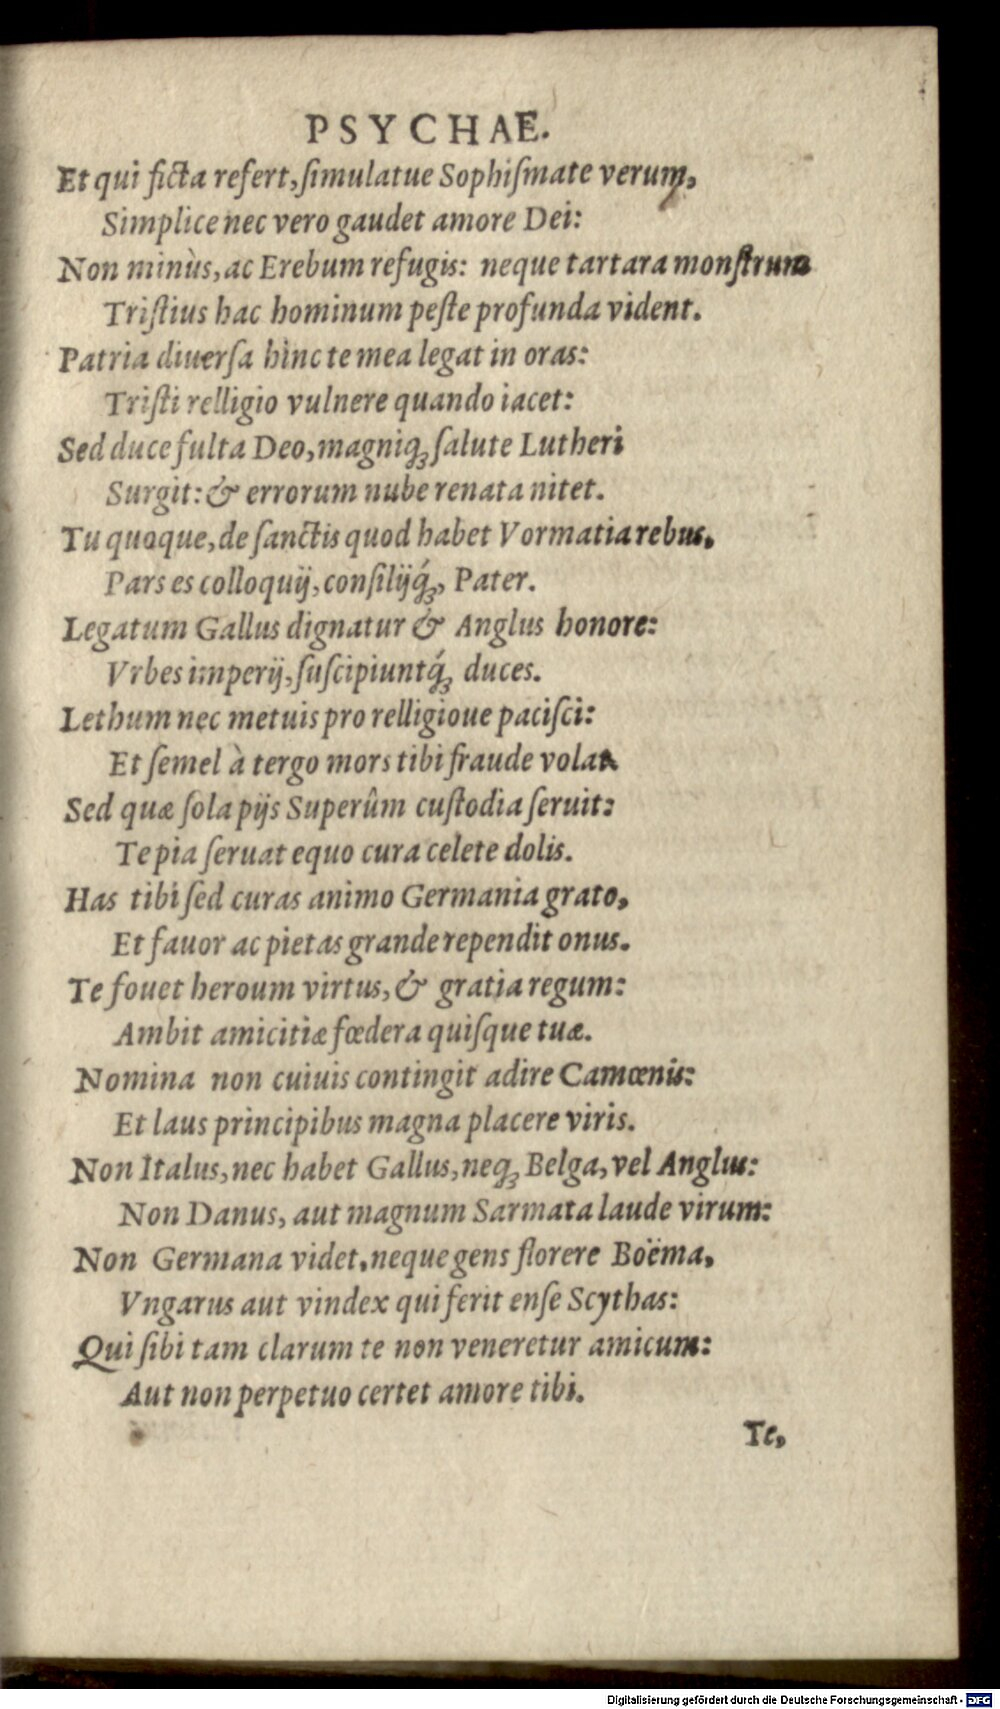 PSYCHAE.
Et qui ficta refert, ſimulatue Sophiſmate verum,
Simplice nec vero gaudet amore Dei:
Non minùs, ac Erebum refugis: neque tartara monſtrum
Triſtius hac hominum peſte profunda vident.
Patria diuerſa hinc te mea legat in oras:
Triſti relligio vulnere quando iacet:
Sed duce fulta Deo, magniq́ꝫ ſalute Lutheri
Surgit: & errorum nube renata nitet.
Tu quoque, de ſanctis quod habet Vormatia rebus,
Pars es colloquij, conſilijq́ꝫ, Pater.
Legatum Gallus dignatur & Anglus honore:
Vrbes imperij, ſuſcipiuntq́ꝫ duces.
Lethum nec metuis pro relligioue paciſci:
Et ſemel à tergo mors tibi fraude volat
Sed quæ ſola pijs Superûm cuſtodia ſeruit:
Te pia ſeruat equo cura celete dolis.
Has tibi ſed curas animo Germania grato,
Et fauor ac pietas grande rependit onus.
Te fouet heroum virtus, & gratia regum:
Ambit amicitiæ fœdera quiſque tuæ.
Nomina non cuiuis contingit adire Camœnis:
Et laus principibus magna placere viris.
Non Italus, nec habet Gallus, neqꝫ Belga, vel Anglus:
Non Danus, aut magnum Sarmata laude virum:
Non Germana videt, neque gens florere Boëma,
Vngarus aut vindex qui ferit enſe Scythas:
Qui ſibi tam clarum te non veneretur amicum:
Aut non perpetuo certet amore tibi.
Te,
Digitalisierung gefördert durch die Deutsche Forschungsgemeinschaft - DFG